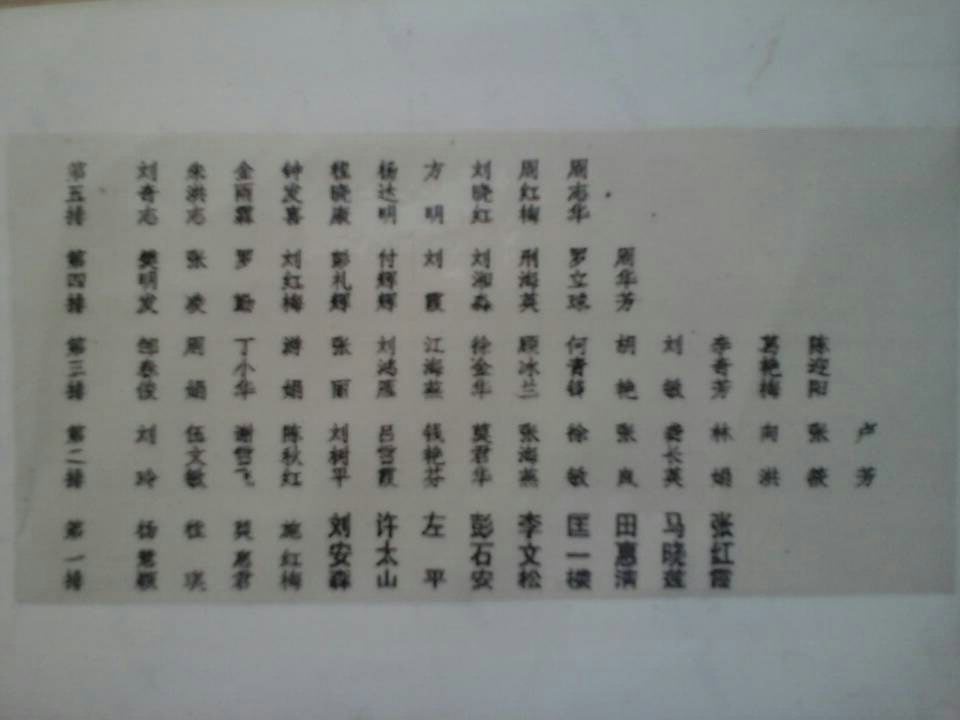 第五排 刘奇志 朱洪志 金雨霖 钟发喜 程晓康 杨达明 方明 刘晓红 周红梅 周志华
第四排 樊明发 张凌 罗勤 刘红梅 彭礼辉 付辉辉 刘霞 刘湘淼 刑海英 罗立球 周华芳
第三排 邹春俊 周娟 丁小华 游娟 张丽 刘鸿雁 江海燕 徐金华 顾冰兰 何青 胡艳 刘敏 李奇芳 葛艳梅 陈迎阳
第二排 刘玲 伍文敏 谢雪飞 陈秋红 刘树平 吕雪霞 钱艳芬 莫君华 张海燕 徐敏 张岚 龚长英 林娟 向洪 张薇 卢芳
第一排 杨慧颖 桂瑛 吴惠君 施红梅 刘安森 许太山 左平 彭石安 李文松 匡一楼 田惠演 马晓莲 张红霞